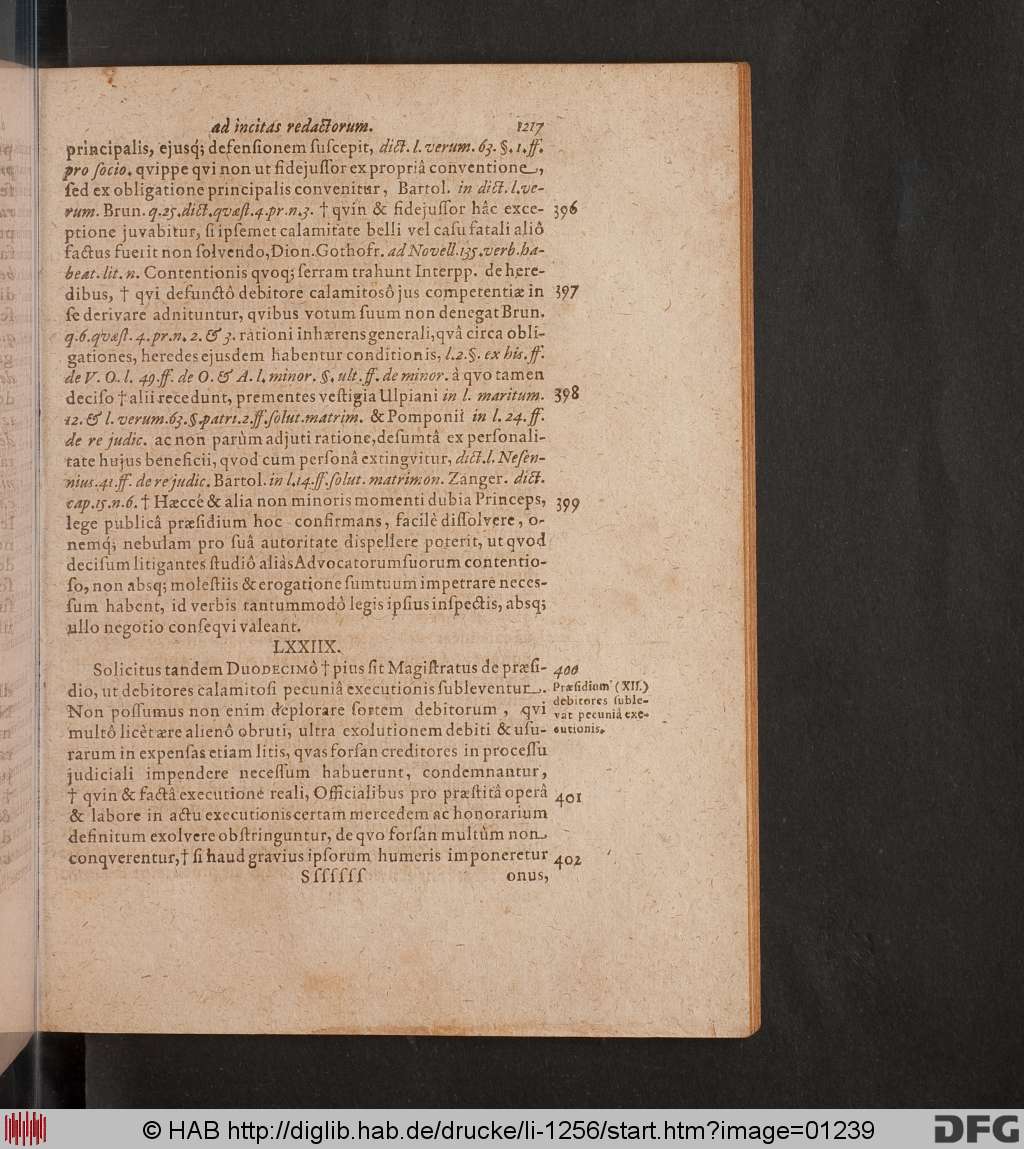 ad incitas redactorum. 1217
principalis, ejusq́; defensionem suscepit, dict. l. verum. 63. §. 1. ff.
pro socio. qvippe qvi non ut fidejussor ex propriâ conventione,
sed ex obligatione principalis convenitur, Bartol. in dict. l. ve-
rum. Brun. q. 25. dict. quæst. 4. pr. n. 3. † qvin & fidejussor hâc exce- 396
ptione juvabitur, si ipsemet calamitate belli vel casu fatali aliô
factus fuerit non solvendo, Dion. Gothofr. ad Novell. 135. verb. ha-
beat. lit. n. Contentionis qvoq; serram trahunt Interpp. de here-
dibus, † qvi defunctô debitore calamitosô jus competentiæ in 397
se derivare adnituntur, qvibus votum suum non denegat Brun.
q. 6. qvæst. 4. pr. n. 2. & 3. rationi inhærens generali, qvâ circa obli-
gationes, heredes ejusdem habentur conditionis, l. 2. §. ex his. ff.
de V. O. l. 49. ff. de O. & A. l. minor. §. ult. ff. de minor. à qvo tamen
deciso † alii recedunt, prementes vestigia Ulpiani in l. maritum. 398
12. & l. verum. 63. §. patri. 2. ff. solut. matrim. & Pomponii in l. 24. ff.
de re judic. ac non parùm adjuti ratione, desumtâ ex personali-
tate hujus beneficii, qvod cum personâ extingvitur, dict. l. Nesen-
nius. 41. ff. de re judic. Bartol. in l. 14. ff. solut. matrimon. Zanger. dict.
cap. 15. n. 6. † Hæccé & alia non minoris momenti dubia Princeps, 399
lege publicâ præsidium hoc confirmans, facilè dissolvere, o-
nemq́; nebulam pro suâ autoritate dispellere poterit, ut qvod
decisum litigantes studiô aliàs Advocatorum suorum contentio-
so, non absq; molestiis & erogatione sumtuum impetrare neces-
sum habent, id verbis tantummodô legis ipsius inspectis, absq;
ullo negotio conseqvi valeant.
LXXIIX.
Solicitus tandem DUODECIMÔ † pius sit Magistratus de præsi- 400
dio, ut debitores calamitosi pecuniâ executionis subleventur. Præsidium (XII.)
debitores suble-
vat pecuniâ exe-
cutionis.
Non possumus non enim deplorare sortem debitorum, qvi
multô licèt ære alienô obruti, ultra exolutionem debiti & usu-
rarum in expensas etiam litis, qvas forsan creditores in processu
judiciali impendere necessum habuerunt, condemnantur,
† qvin & factâ executione reali, Officialibus pro præstitâ operâ 401
& labore in actu executionis certam mercedem ac honorarium
definitum exolvere obstringuntur, de qvo forsan multùm non
conqverentur, † si haud gravius ipsorum humeris imponeretur 402
Sssssss onus,
© HAB http://diglib.hab.de/drucke/li-1256/start.htm?image=01239
DFG